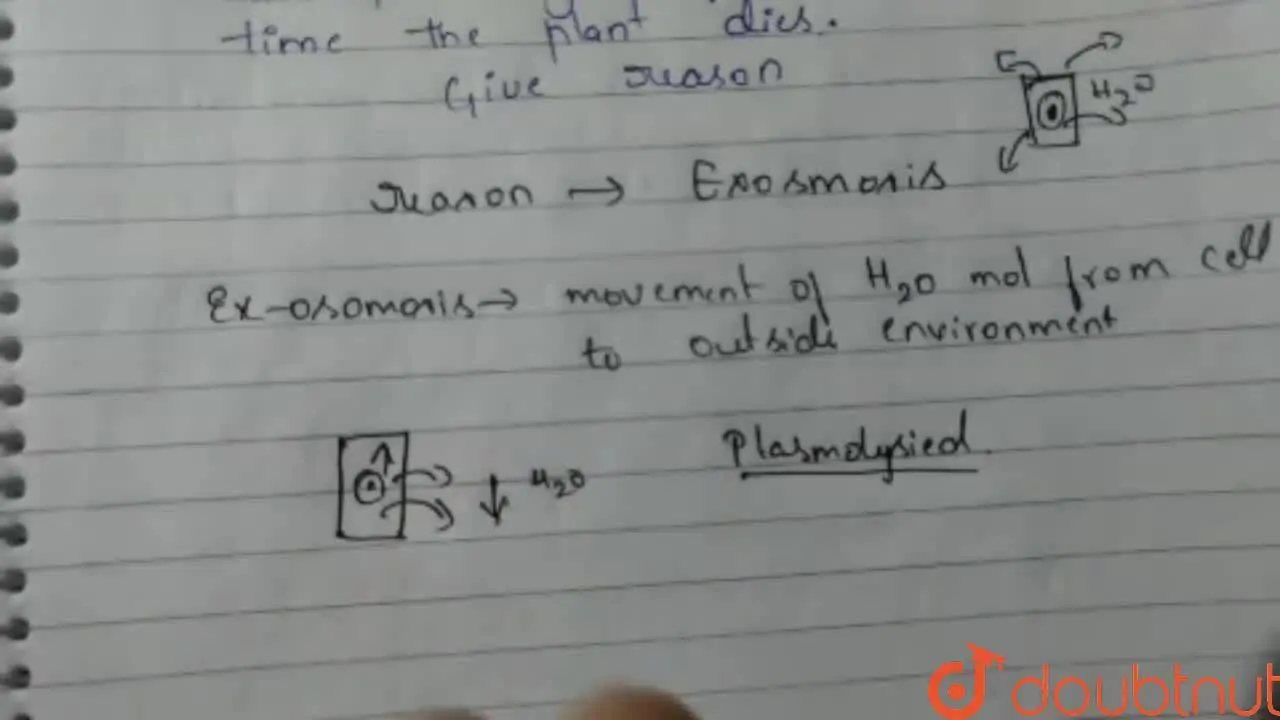 time the plant dies.
Give reason
H2O
reason → Exosmosis
Ex-osomosis → movement of H2O mol from cell
to outside environment
Plasmolysied.
↓ H2O
doubtnut